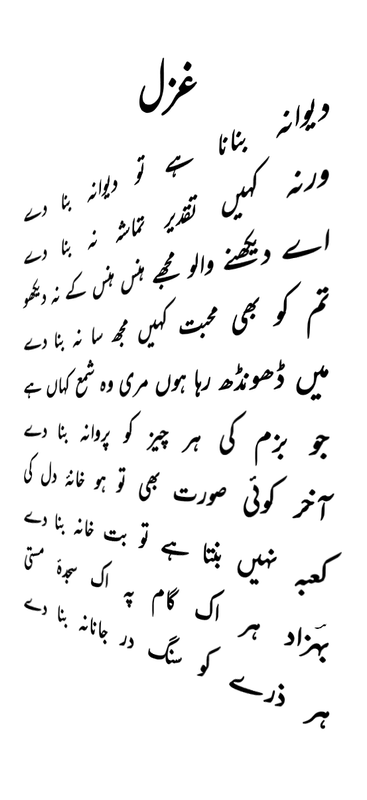 غزل
دیوانہ بنانا ہے تو دیوانہ بنا دے
ورنہ کہیں تقدیر تماشہ نہ بنا دے
اے دیکھنے والو مجھے ہنس ہنس کے نہ دیکھو
تم کو بھی محبت کہیں مجھ سا نہ بنا دے
میں ڈھونڈھ رہا ہوں مری وہ شمع کہاں ہے
جو بزم کی ہر چیز کو پروانہ بنا دے
آخر کوئی صورت بھی تو ہو خانۂ دل کی
کعبہ نہیں بنتا ہے تو بت خانہ بنا دے
بہزاد ہر اک گام پہ اک سجدۂ مستی
ہر ذرے کو سنگ در جانانہ بنا دے